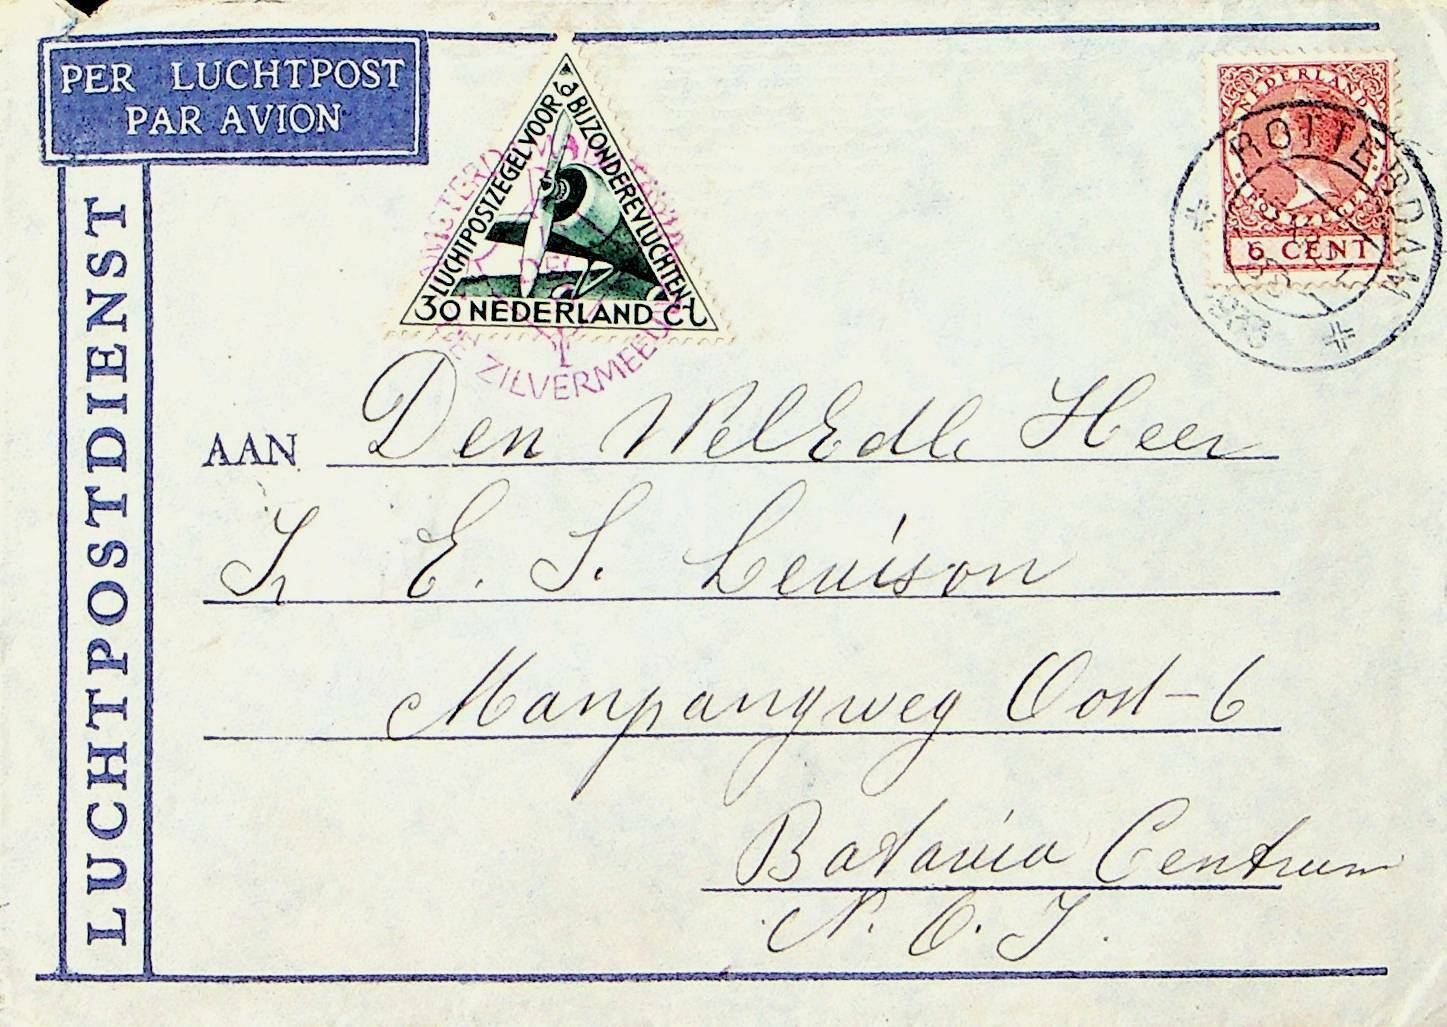 PER LUCHTPOST
PAR AVION
LUCHTPOSTDIENST
LUCHTPOSTZEGEL VOOR
BIJZONDERE VLUCHTEN
30 NEDERLAND Ct
AMSTERD
DEC
DE ZILVERMEEU
NEDERLAND
6 CENT
ROTTERDAM
AAN Den WelEdle Heer
Ir E. S. Levison
Manpangweg Oost-6
Batavia Centrum
N. O. I.